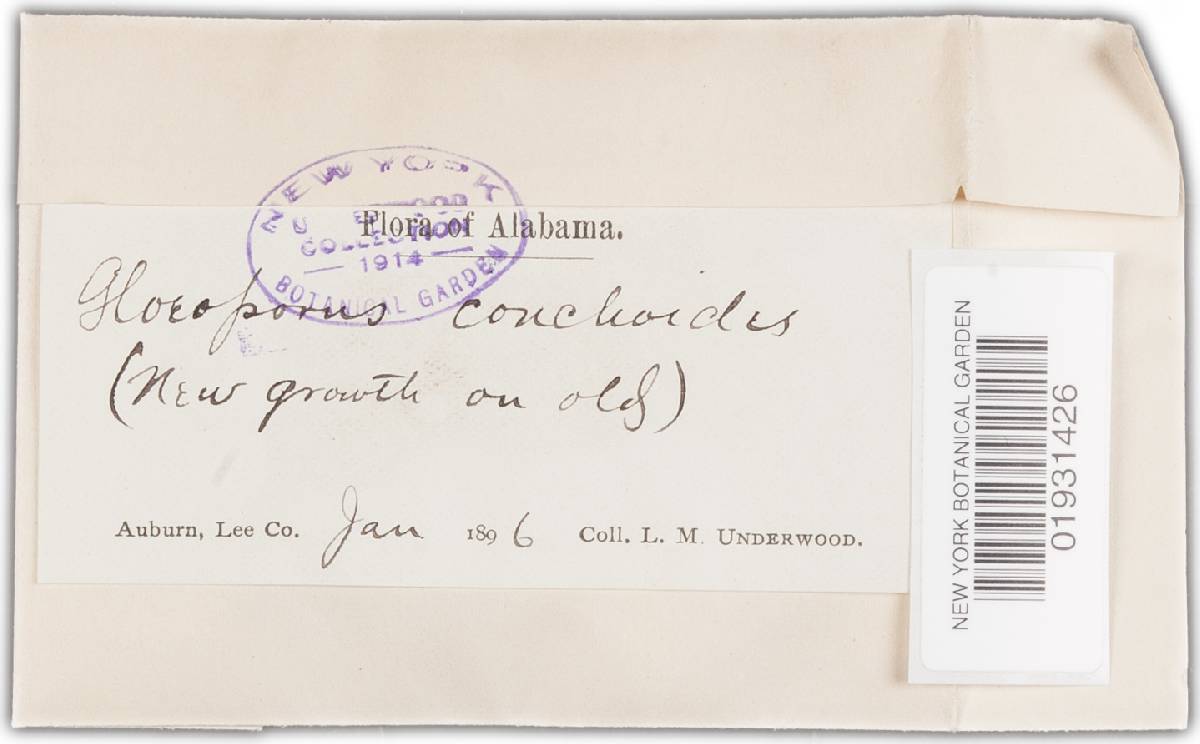 NEW YORK
UNDERWOOD
COLLECTION
1914
BOTANICAL GARDEN
Flora of Alabama.
Gloeoporus conchoides
(New growth on old)
Auburn, Lee Co. Jan 1896 Coll. L. M. UNDERWOOD.
NEW YORK BOTANICAL GARDEN
01931426